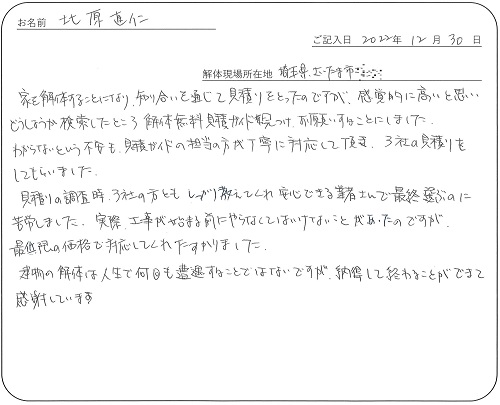 お名前 北原直仁
ご記入日 2022年 12月 30日
解体現場所在地 埼玉県さいたま市
家を解体することになり、知り合いを通じて見積りをとったのですが、感覚的に高いと思い
どうしようか検索したところ解体無料見積ガイドを見つけ、お願いすることにしました。
わからないという不安も、見積ガイドの担当の方が丁寧に対応して頂き、3社の見積りを
してもらいました。
見積りの調査時、3社の方ともしっかり教えてくれ安心できる業者さんで最終選ぶのに
苦労しました。実際、工事が始まる前にやらなくてはいけないことがあったのですが、
最低限の価格で対応してくれたすかりました。
建物の解体は人生で何回も遭遇することではないですが、納得して終わることができて
感謝しています